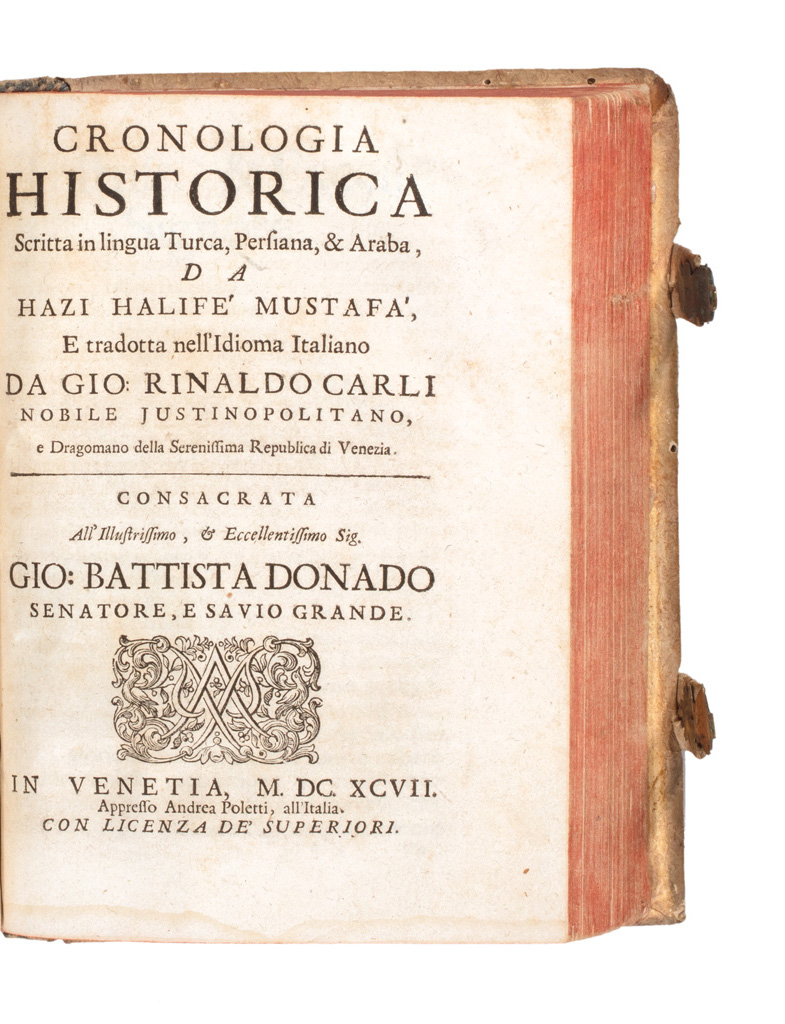 CRONOLOGIA
HISTORICA
Scritta in lingua Turca, Perſiana, & Araba,
D A
HAZI HALIFE' MUSTAFA',
E tradotta nell'Idioma Italiano
DA GIO: RINALDO CARLI
NOBILE JUSTINOPOLITANO,
e Dragomano della Sereniſſima Republica di Venezia.
CONSACRATA
All'Illuſtriſſimo, & Eccellentiſſimo Sig.
GIO: BATTISTA DONADO
SENATORE, E SAVIO GRANDE.
IN VENETIA, M. DC. XCVII.
Appreſſo Andrea Poletti, all'Italia.
CON LICENZA DE' SUPERIORI.